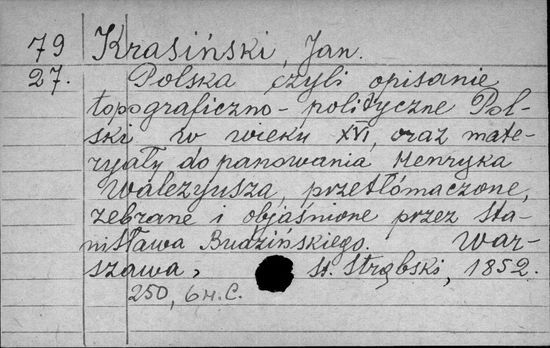 79 Krasiński, Jan.
27. Polska czyli opisanie
topograficzno-polityczne Pol-
ski w wieku XVI, oraz mate-
ryały do panowania Henryka
Walezyusza, przetłómaczone,
zebrane i objaśnione przez Sta-
nisława Budzińskiego. War-
szawa, St. Strąbski, 1852.
250, 6 н.с.